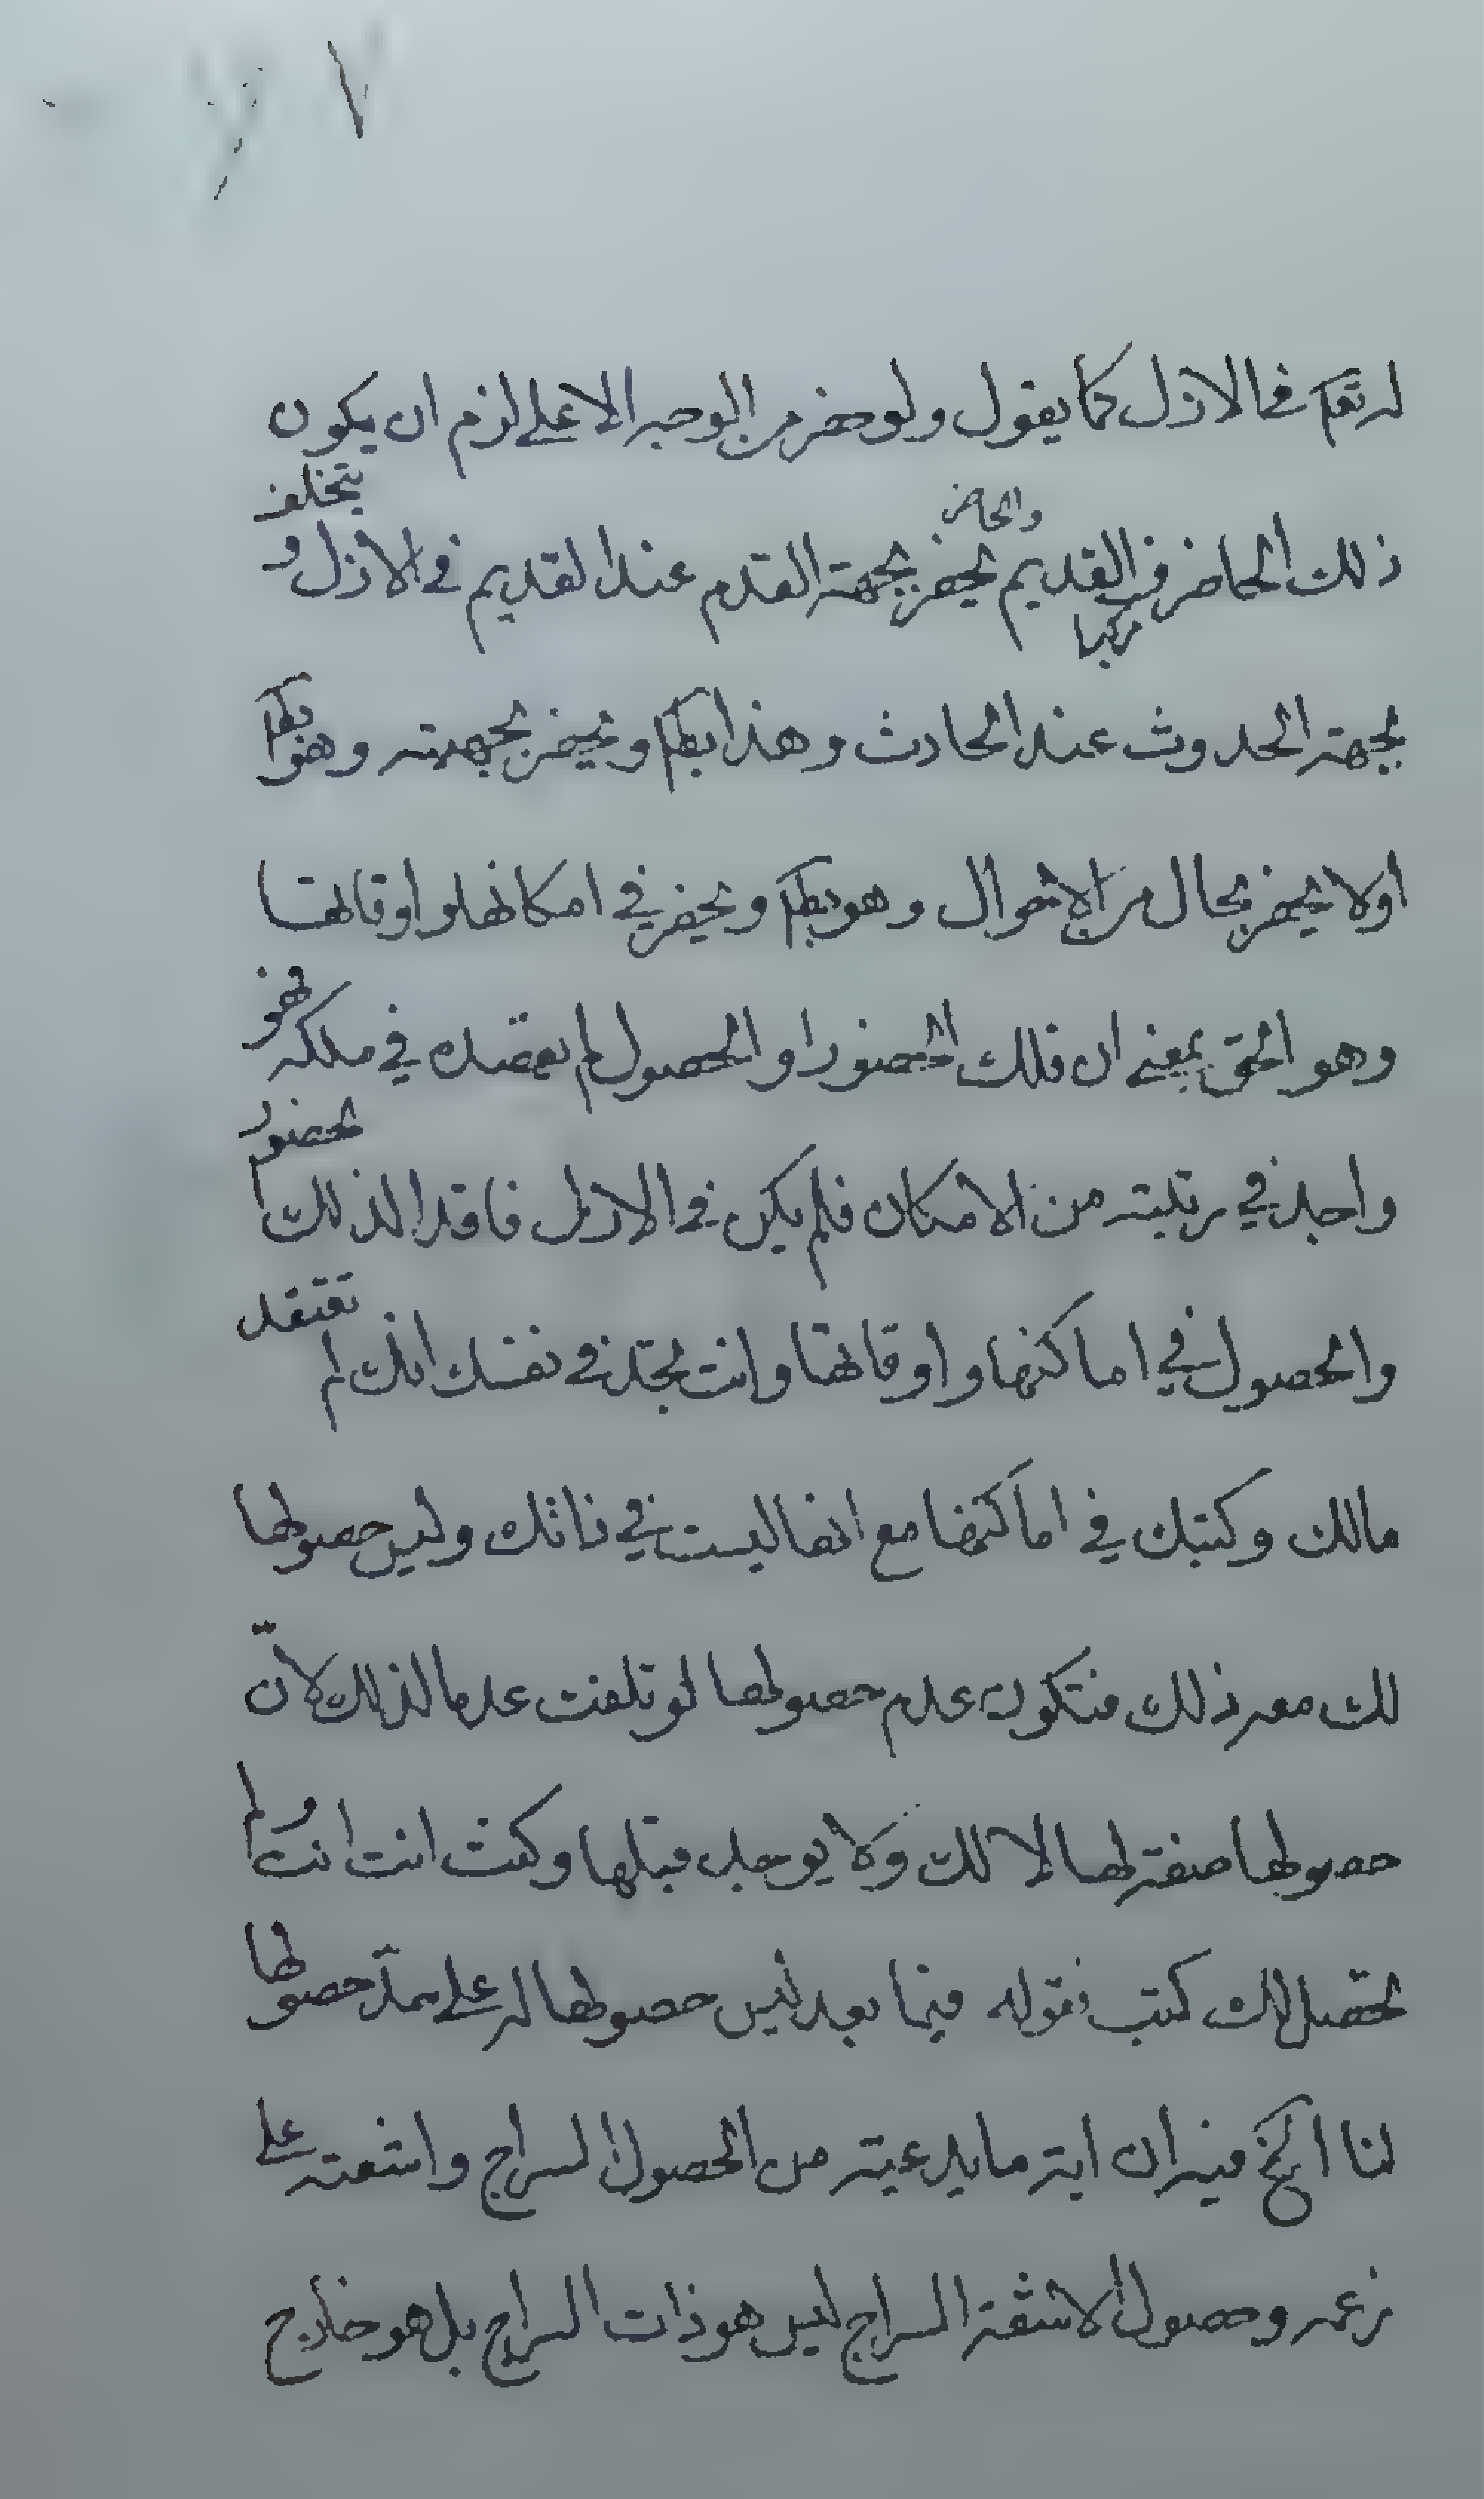 له تعالى في الازل كما يقول ولو حضر من الوجه الاعلى لزم ان يكون
ذلك الحاضر في القديم والحاضر مركبا يحضر بجهة القدم عند القديم في الازل و يتخلف
بجهة الحدوث عند الحادث وهذا بط ويحضر بجهته وهو بط
اولا يحضر بحال من الاحوال وهو بط ويحضر في امكانها واوقاتها
وهو الحق بمعنى ان ذلك الحضور او الحصول لم يفقده في ملكه فهو
واجد في رتبته من الامكان فلم يكن في الازل فاقدا لذلك الحضور
والحصول في اماكنها واوقاتها وانت تجد في نفسك انك لم تفتقد
مالك وكتبك في اماكنها مع انها ليست في ذاتك وليس حصولها
لك معه ذلك فتكون عدم حصولها لو تلفت عدما لذلك لان
حصولها صفة لها لا لك ولا يوجد قبلها وكنت انت انت ولم
تحصل لك كتب فقوله فيما بعد ليس حصولها له على حد حصولها
لنا الخ فيه ان اية ما يدعيه من الحصول السراج واشعته على
زعمه وحصول الاشعة السراج ليس هو ذات السراج بل هو خارج